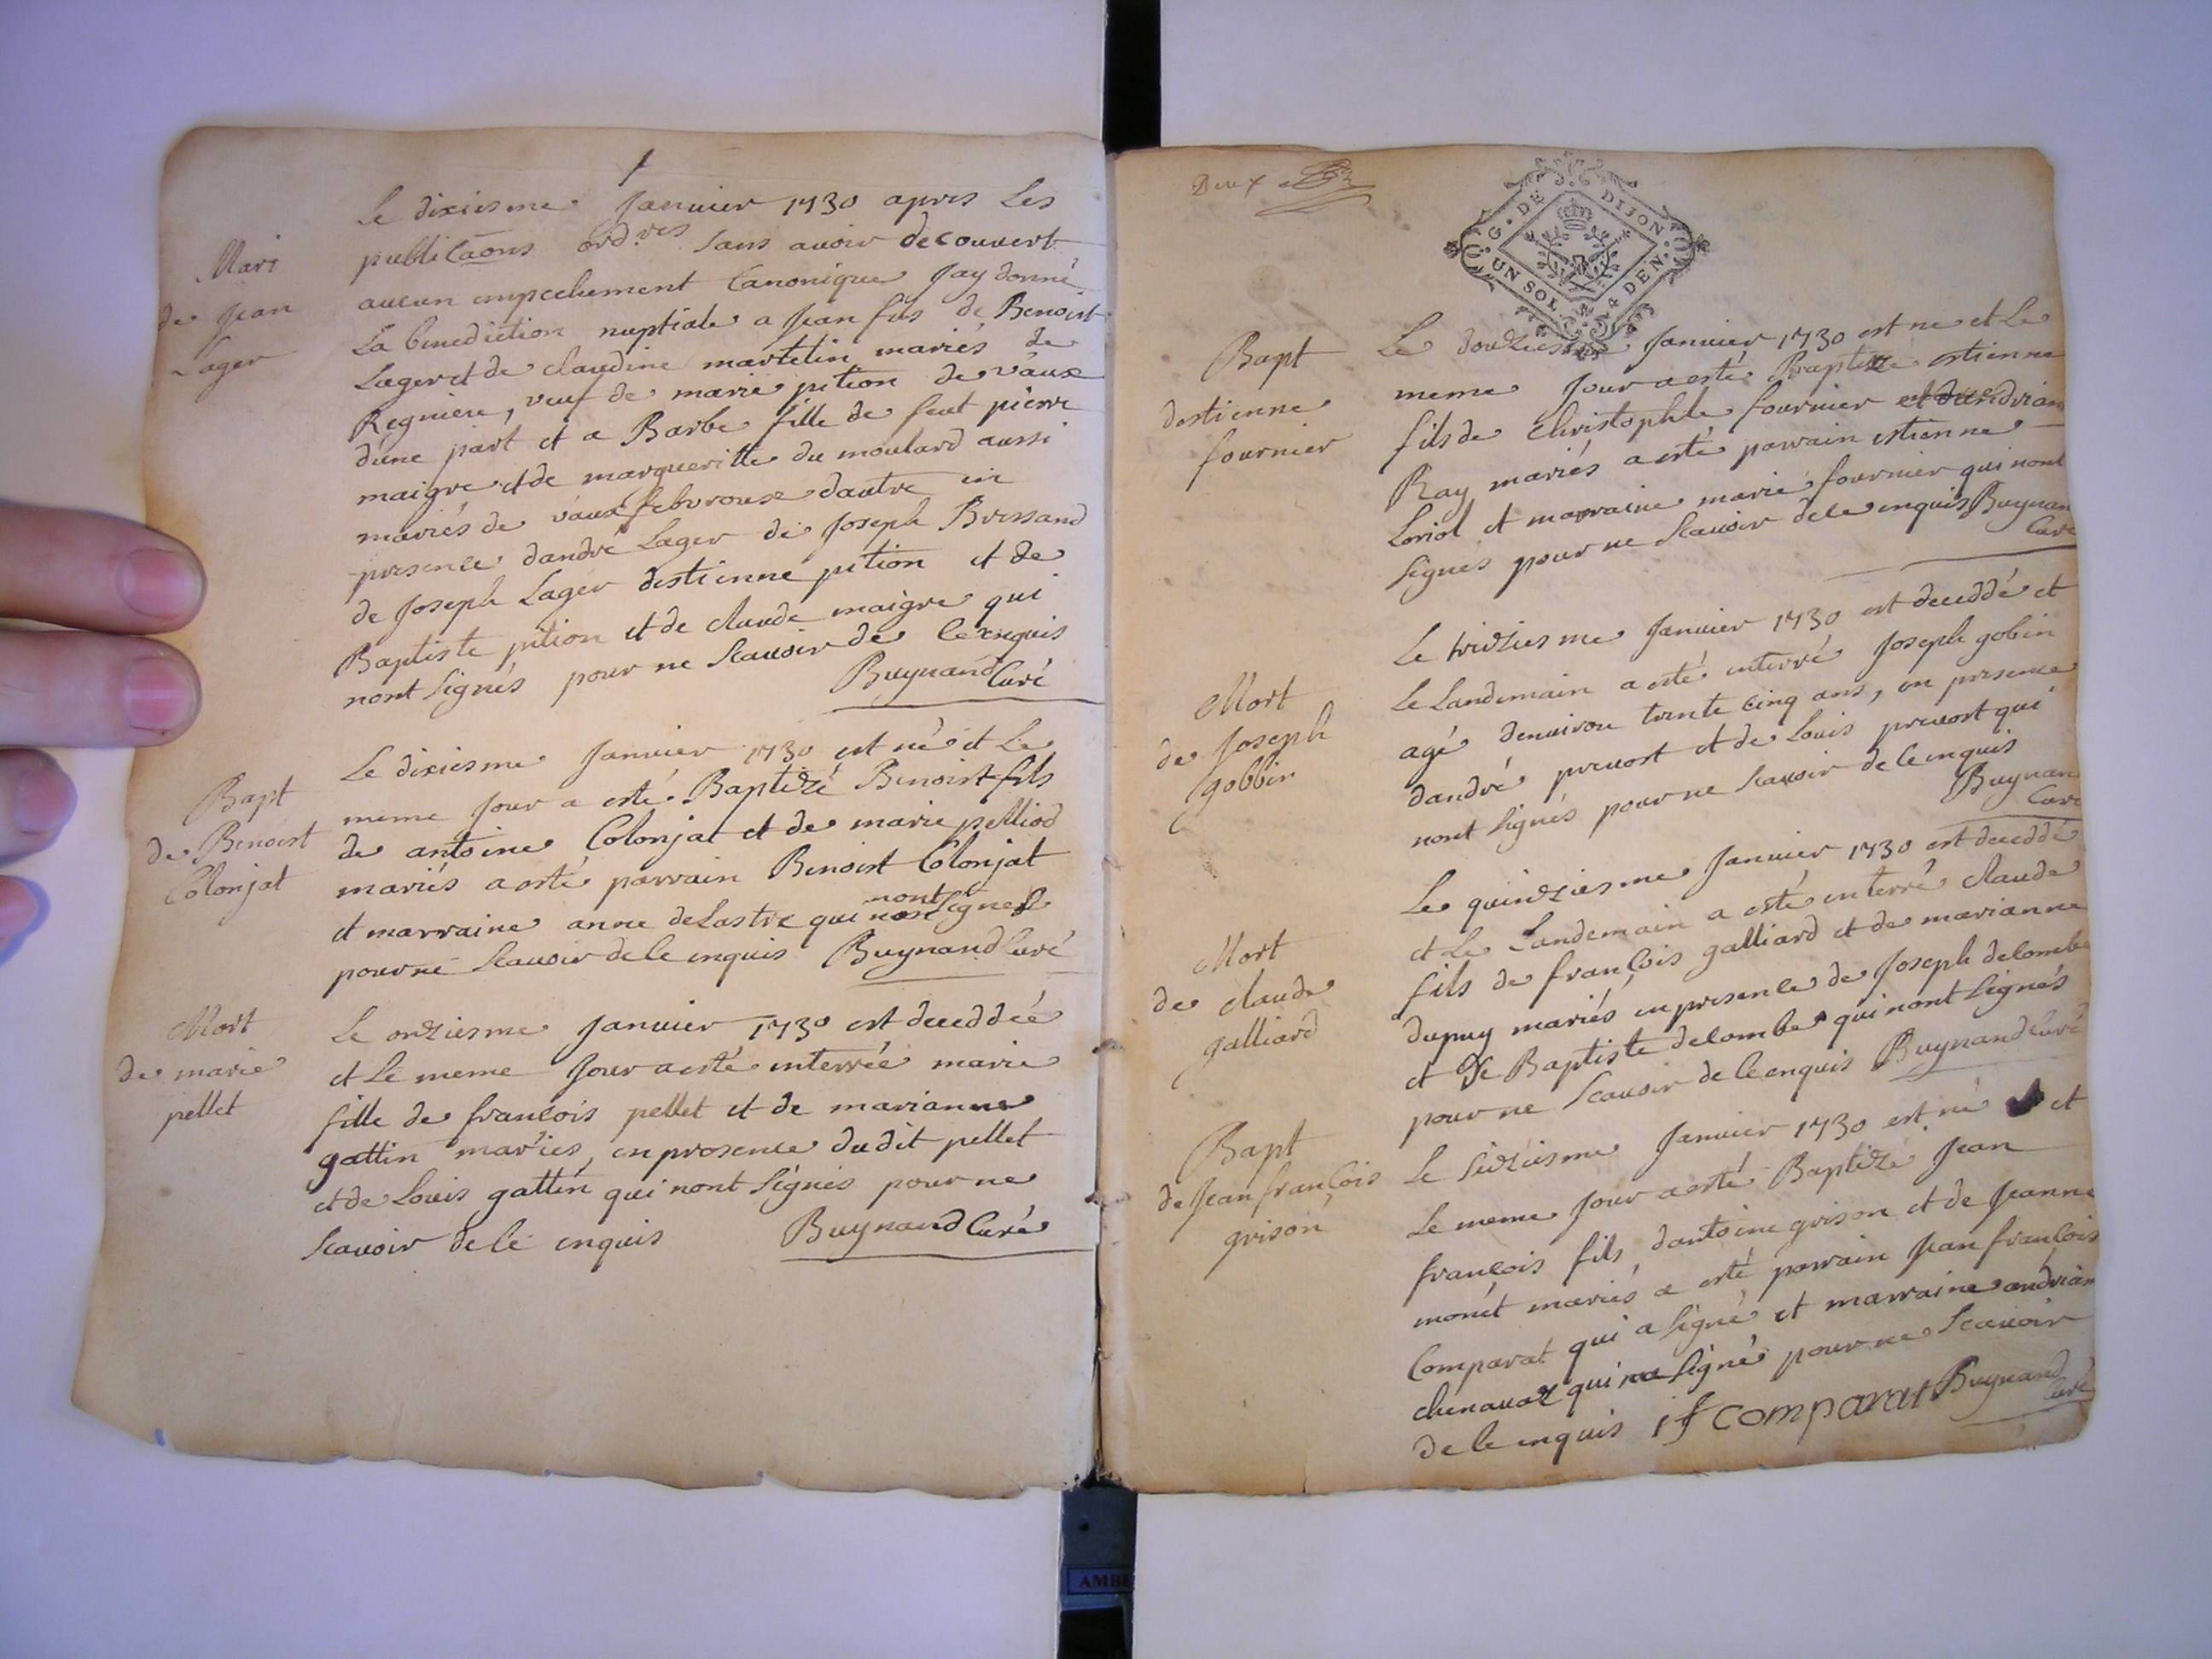 1
Mari
de Jean
Lager
Le dixiesme Janvier 1730 apres Les
publicaõns ord.res sans avoir decouvert
aucun empechement Canonique Jay donné
La benediction nuptiale a Jean fils de Benoist
Lager et de claudine martelin mariés de
Regniere, veuf de marie pition de vaux
dune part et a Barbe fille de feut pierre
maigre et de margueritte du moulard aussi
mariés de vaux febvrouse dautre en
presence dandré Lager de Joseph Bressand
de Joseph Lager destienne pition et de
Baptiste pition et de claude maigre qui
nont signés pour ne scavoir de ce enquis
Buynand Curé
Bapt
de Benoist
Colonjat
Le dixiesme Janvier 1730 est né et Le
meme Jour a esté Baptizé Benoist fils
de antoine Colonjat et de marie pelliod
mariés a esté parrain Benoist Colonjat
et marraine anne deLastre qui nont signes
pour ne scavoir de ce enquis Buynand Curé
Mort
de marie
pellet
Le onziesme Janvier 1730 est deceddée
et Le meme Jour a esté interrée marie
fille de francois pellet et de marianne
gattin mariés, en presence dudit pellet
et de Louis gattin qui nont signés pour ne
scavoir de ce enquis Buynand Curé
Deux
G. DE DIJON
UN SOL. 4 DEN.
Bapt
destienne
fournier
Le douziesme Janvier 1730 est ne et Le
meme Jour a esté Baptizé estienne
fils de Christophle fournier et dandrian
Ray mariés a esté parrain estienne
Loriol et marraine marie fournier qui nont
signes pour ne scavoir de ce enquis Buynan
Curé
Mort
de Joseph
gobbin
Le treiziesme Janvier 1730 est deceddé et
Le Landemain a esté interré Joseph gobin
agé denviron trente cinq ans, en presence
dandré prevost et de Louis prevost qui
nont signés pour ne scavoir de ce enquis
Buynan
Curé
Mort
de claude
galliard
Le quinziesme Janvier 1730 est deceddé
et Le Landemain a esté interré claude
fils de françois galliard et de marianne
dupuy mariés en presence de Joseph delombe
et de Baptiste delombe qui nont signés
pour ne scavoir de ce enquis Buynand Curé
Bapt
de Jean françois
grison
Le seiziesme Janvier 1730 est né et
Le meme Jour a esté Baptizé Jean
francois fils dantoine grison et de Jeanne
monet mariés a esté parrain Jean françois
Comparat qui a signé et marraine andrian
chenavaz qui na signé pour ne scavoir
de ce enquis jf comparat Buynand
Curé
AMBE